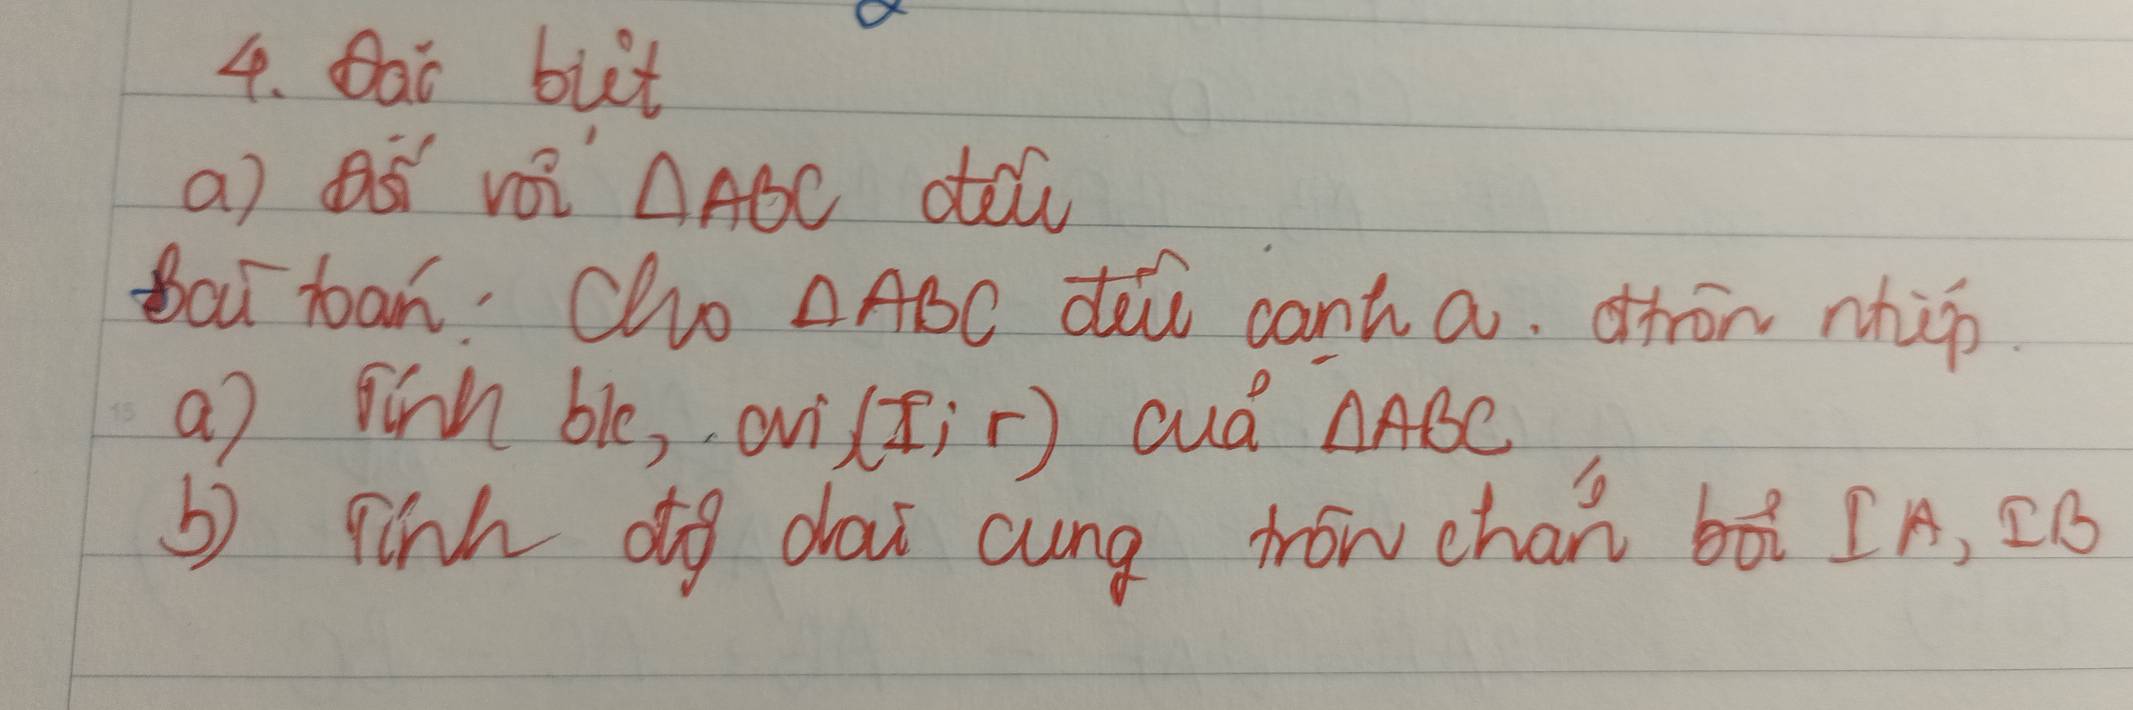 4. Đặc biệt
a) Đối với ΔABC đều
Bài toán: Cho ΔABC đều cạnh a. đtròn nhiếp.
a) Tính bk, cvi (I; r) của ΔABC
b) Tính độ dài cung tròn chắn bởi IA, IB